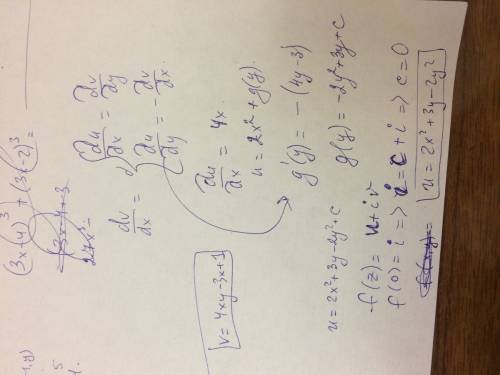 (3x+y)³ + (3(-2)³ =
dv/dx =
{ du/dx = dv/dy
du/dy = -dv/dx.
v = 4xy-3x+1
du/dx = 4x
u = 2x² + g(y).
g'(y) = -(4y-3)
g(y) = -2y²+3y+C
u = 2x²+3y-2y²+C
f(z) = u+iv
f(0) = i => i = C + i => C = 0
u = 2x²+3y-2y²